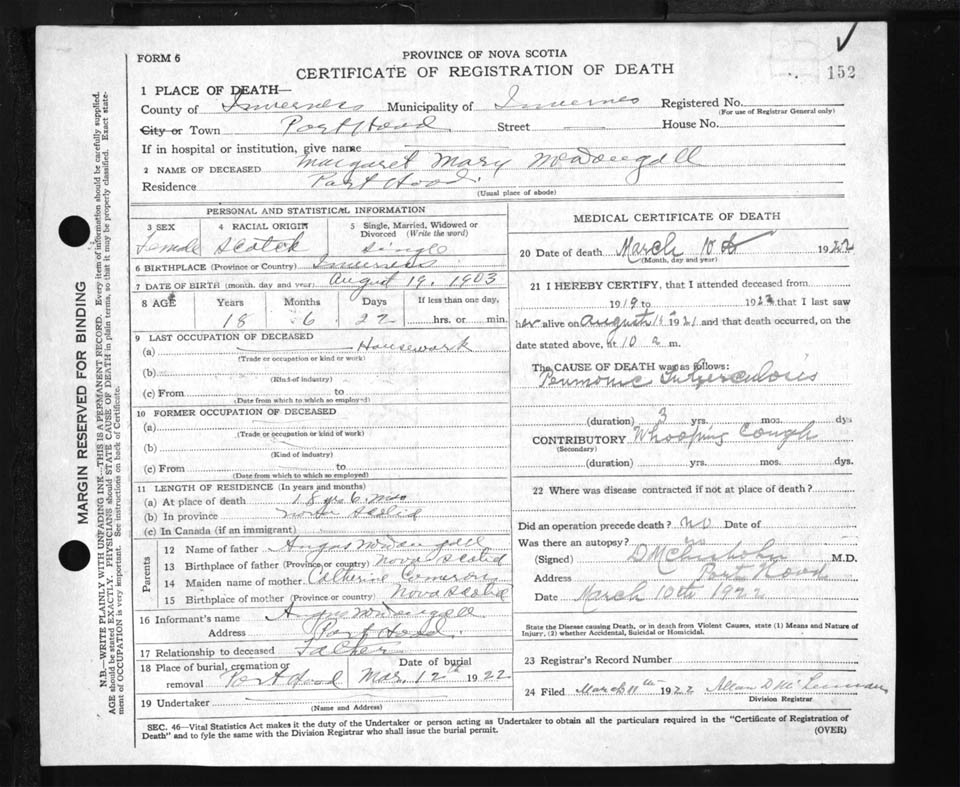 FORM 6
PROVINCE OF NOVA SCOTIA
CERTIFICATE OF REGISTRATION OF DEATH
152
1 PLACE OF DEATH—
County of Inverness Municipality of Inverness Registered No.
(For use of Registrar General only)
City or Town Port Hood Street — House No.
If in hospital or institution, give name —
2 NAME OF DECEASED Margaret Mary McDougall
Residence Port Hood.
(Usual place of abode)
PERSONAL AND STATISTICAL INFORMATION
3 SEX 4 RACIAL ORIGIN 5 Single, Married, Widowed or Divorced (Write the word)
Female Scotch Single
6 BIRTHPLACE (Province or Country) Inverness
7 DATE OF BIRTH (month, day and year) August 19, 1903
8 AGE Years Months Days If less than one day,
18 6 22 hrs. or min.
9 LAST OCCUPATION OF DECEASED
(a) Housework
(Trade or occupation or kind of work)
(b)
(Kind of industry)
(c) From to
(Date from which to which so employed)
10 FORMER OCCUPATION OF DECEASED
(a)
(Trade or occupation or kind of work)
(b)
(Kind of industry)
(c) From to
(Date from which to which so employed)
11 LENGTH OF RESIDENCE (In years and months)
(a) At place of death 18 yrs 6 mos
(b) In province Nova Scotia
(c) In Canada (if an immigrant)
Parents
12 Name of father Angus McDougall
13 Birthplace of father (Province or country) Nova Scotia
14 Maiden name of mother Catherine Cameron
15 Birthplace of mother (Province or country) Nova Scotia
16 Informant's name Angus McDougall
Address Port Hood.
17 Relationship to deceased Father
18 Place of burial, cremation or removal Port Hood Date of burial Mar. 12th 1922
19 Undertaker
(Name and Address)
MEDICAL CERTIFICATE OF DEATH
20 Date of death March 10th 1922
(Month, day and year)
21 I HEREBY CERTIFY, that I attended deceased from
1919 to 1922 that I last saw
her alive on August 1921 and that death occurred, on
date stated above, at 10 a m.
The CAUSE OF DEATH was as follows:
Penmonic Tuberculosis
(duration) 3 yrs. mos. dys
CONTRIBUTORY Whooping Cough
(Secondary)
(duration) yrs. mos. dys.
22 Where was disease contracted if not at place of death?
Did an operation precede death? no Date of
Was there an autopsy? no
(Signed) D McChisholm M.D.
Address Port Hood
Date March 10th 1922
State the Disease causing Death, or in death from Violent Causes, state (1) Means and Nature of Injury, (2) whether Accidental, Suicidal or Homicidal.
23 Registrar's Record Number
24 Filed March 11th 1922 Allan D
Division Registrar
SEC. 46—Vital Statistics Act makes it the duty of the Undertaker or person acting as Undertaker to obtain all the particulars required in the "Certificate of Registration of
Death" and to fyle the same with the Division Registrar who shall issue the burial permit.
(OVER)
MARGIN RESERVED FOR BINDING
N.B.—WRITE PLAINLY WITH UNFADING INK.—THIS IS A PERMANENT RECORD. Every item of information should be carefully supplied.
AGE should be stated EXACTLY. PHYSICIANS should STATE CAUSE OF DEATH in plain terms, so that it may be properly classified. Exact statement of OCCUPATION is very important. See instructions on back of Certificate.